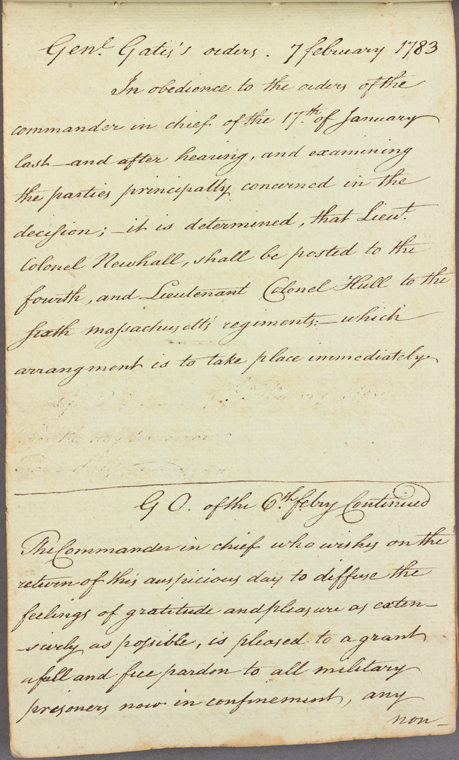 Genl. Gates's orders. 7 february 1783
In obedience to the orders of the
commander in chief of the 17th of January
last—and after hearing, and examining
the parties principally concerned in the
decision;—it is determined, that Lieut.
Colonel Newhall, shall be posted to the
fourth, and Lieutenant Colonel Hull to the
sixth massachusetts regiments;—which
arrangment is to take place immediately.
G O. of the 6th febry Continued
The Commander in chief who wishes on the
return of this auspicious day to diffuse the
feelings of gratitude and pleasure as exten-
-sively as possible, is pleased to a grant
a full and free pardon to all military
prisoners now in confinement, any
non-